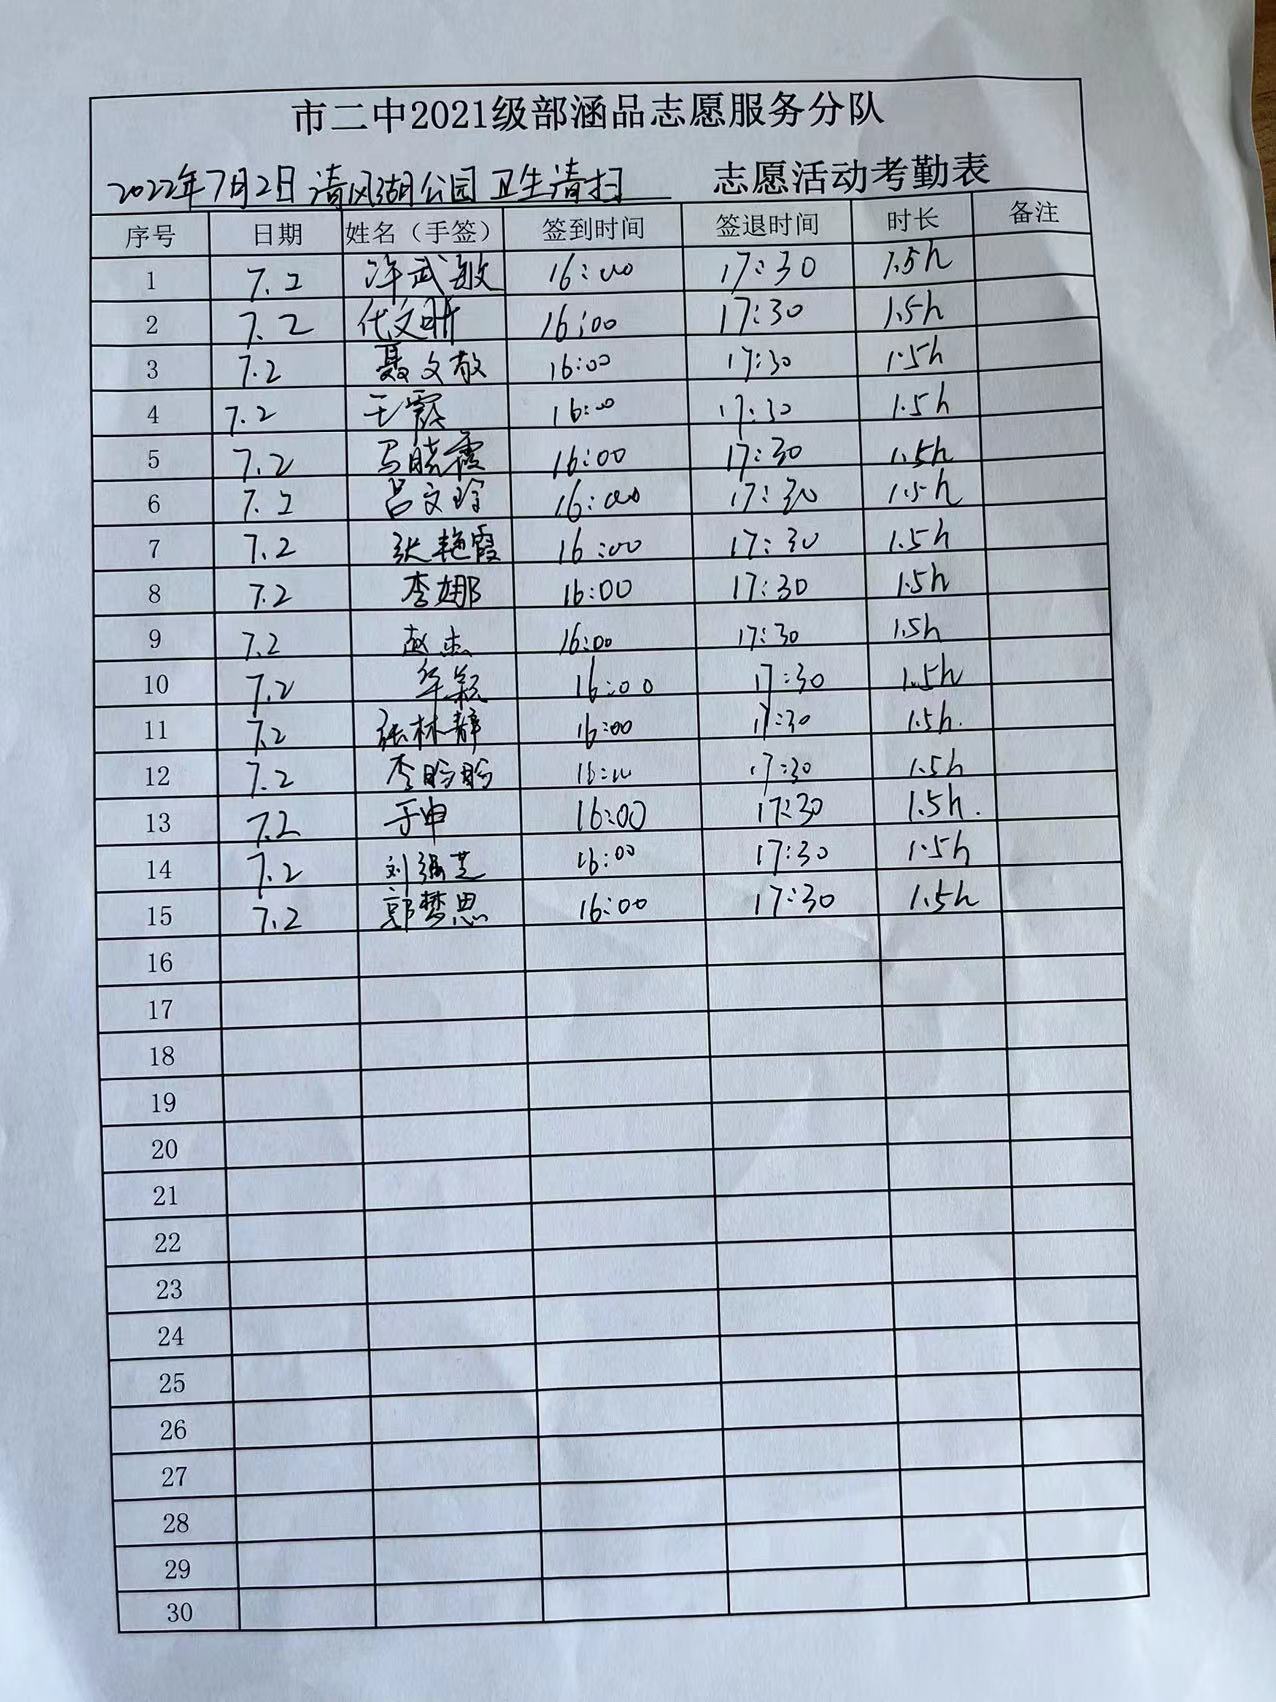 市二中2021级部涵品志愿服务分队
2022年7月2日清风湖公园卫生清扫 志愿活动考勤表
序号 日期 姓名（手签） 签到时间 签退时间 时长 备注
1 7.2 许武敏 16:00 17:30 1.5h
2 7.2 代文昕 16:00 17:30 1.5h
3 7.2 聂文敬 16:00 17:30 1.5h
4 7.2 王霞 16:00 17:30 1.5h
5 7.2 马晓霞 16:00 17:30 1.5h
6 7.2 吕文玲 16:00 17:30 1.5h
7 7.2 张艳霞 16:00 17:30 1.5h
8 7.2 李娜 16:00 17:30 1.5h
9 7.2 赵杰 16:00 17:30 1.5h
10 7.2 16:00 17:30 1.5h
11 7.2 张林静 16:00 17:30 1.5h.
12 7.2 李盼盼 16:00 17:30 1.5h
13 7.2 于申 16:00 17:30 1.5h.
14 7.2 刘强芝 16:00 17:30 1.5h
15 7.2 郭梦思 16:00 17:30 1.5h
16
17
18
19
20
21
22
23
24
25
26
27
28
29
30